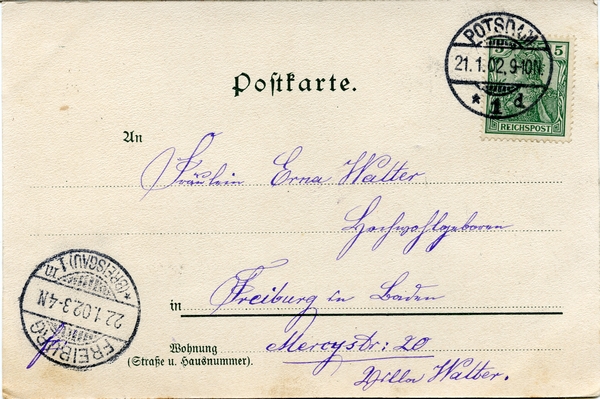 POTSDAM
21.1.02.9-10N.
* 1 d
5 5
REICHSPOST
Postkarte.
An
Fräulein Erna Walter
Hochwohlgeboren
in Freiburg in Baden
Wohnung
(Straße u. Hausnummer).
Mercystr: 20
Villa Walter.
FREIBURG
22.1.02.3-4N
* (BREISGAU) 1 m